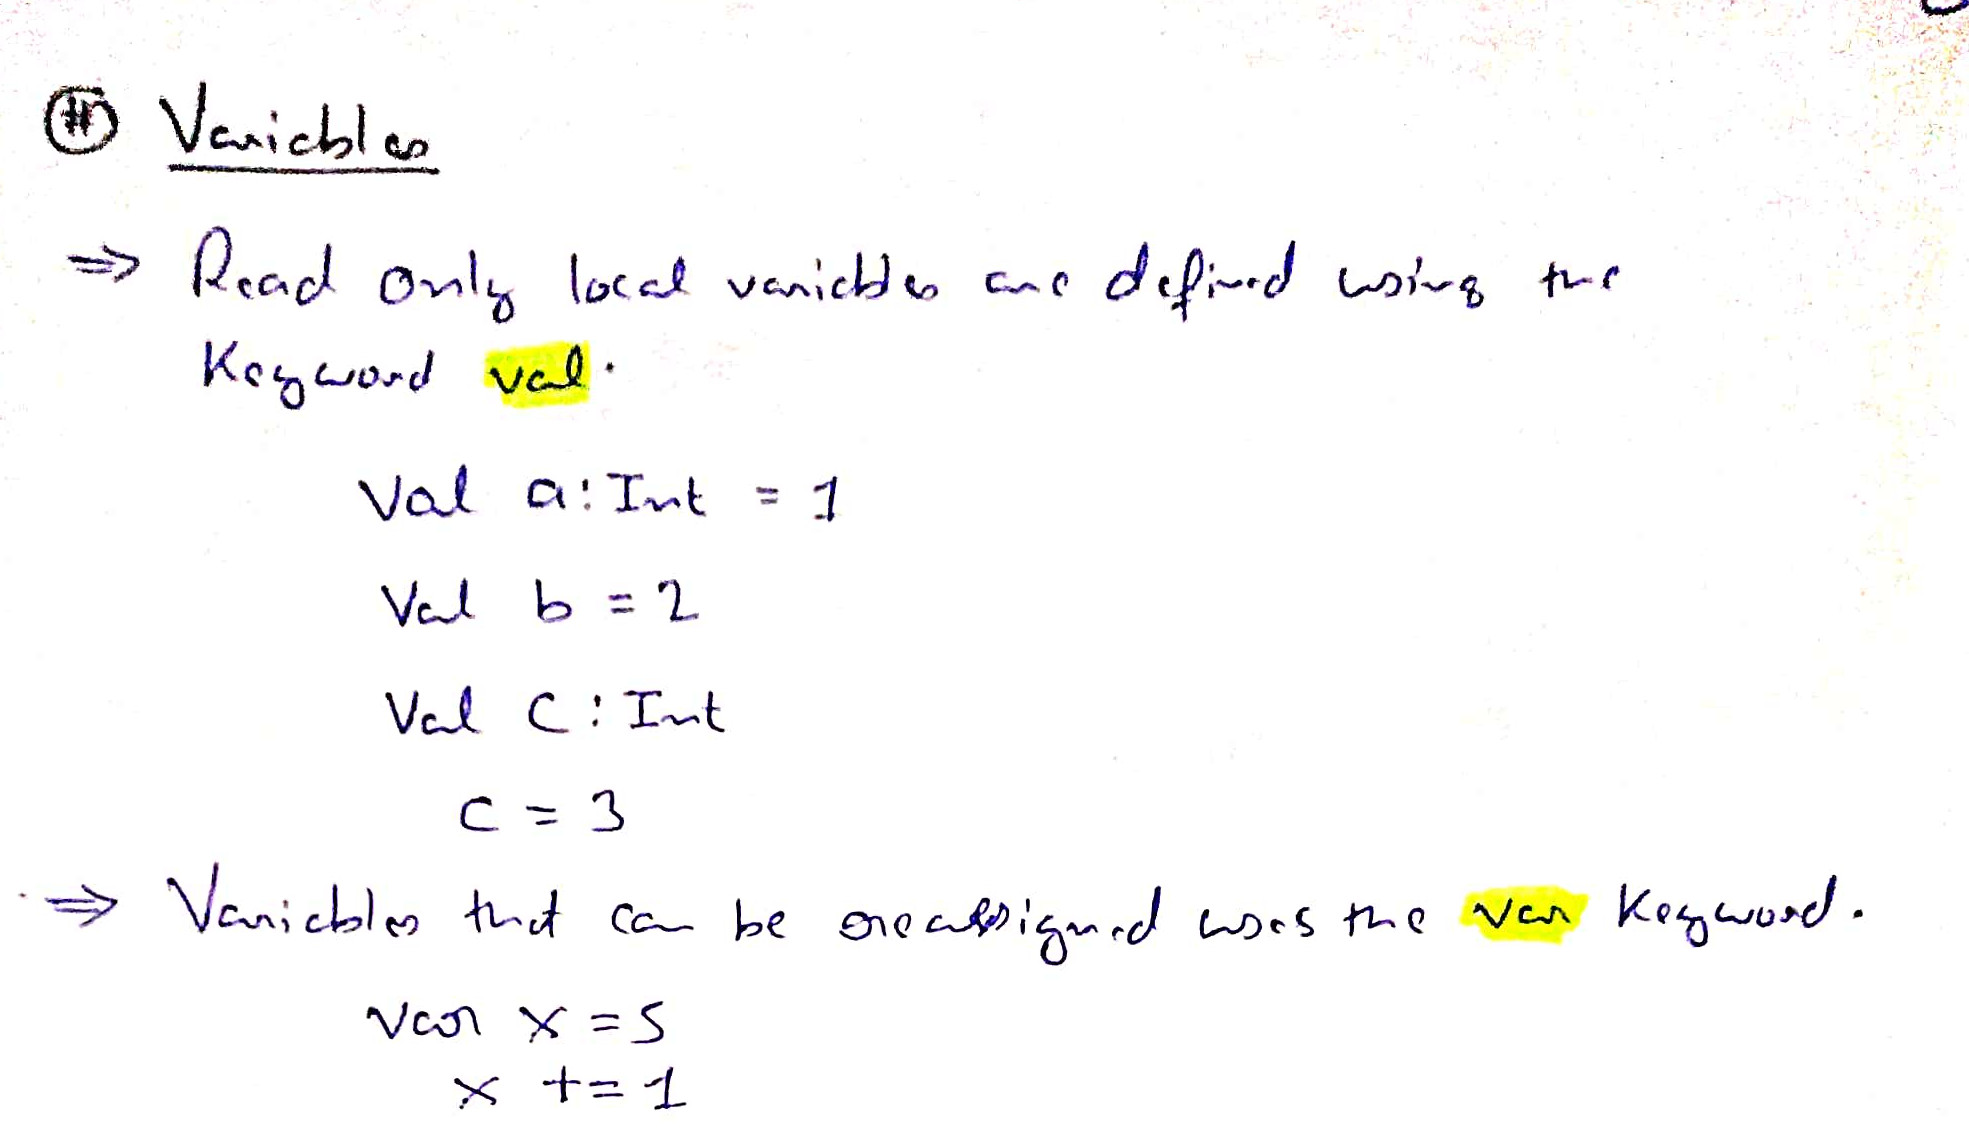 # Variables
⇒ Read only local variables are defined using the
Keyword val.
Val a: Int = 1
Val b = 2
Val c: Int
c = 3
⇒ Variables that can be reassigned uses the var Keyword.
var x = 5
x += 1